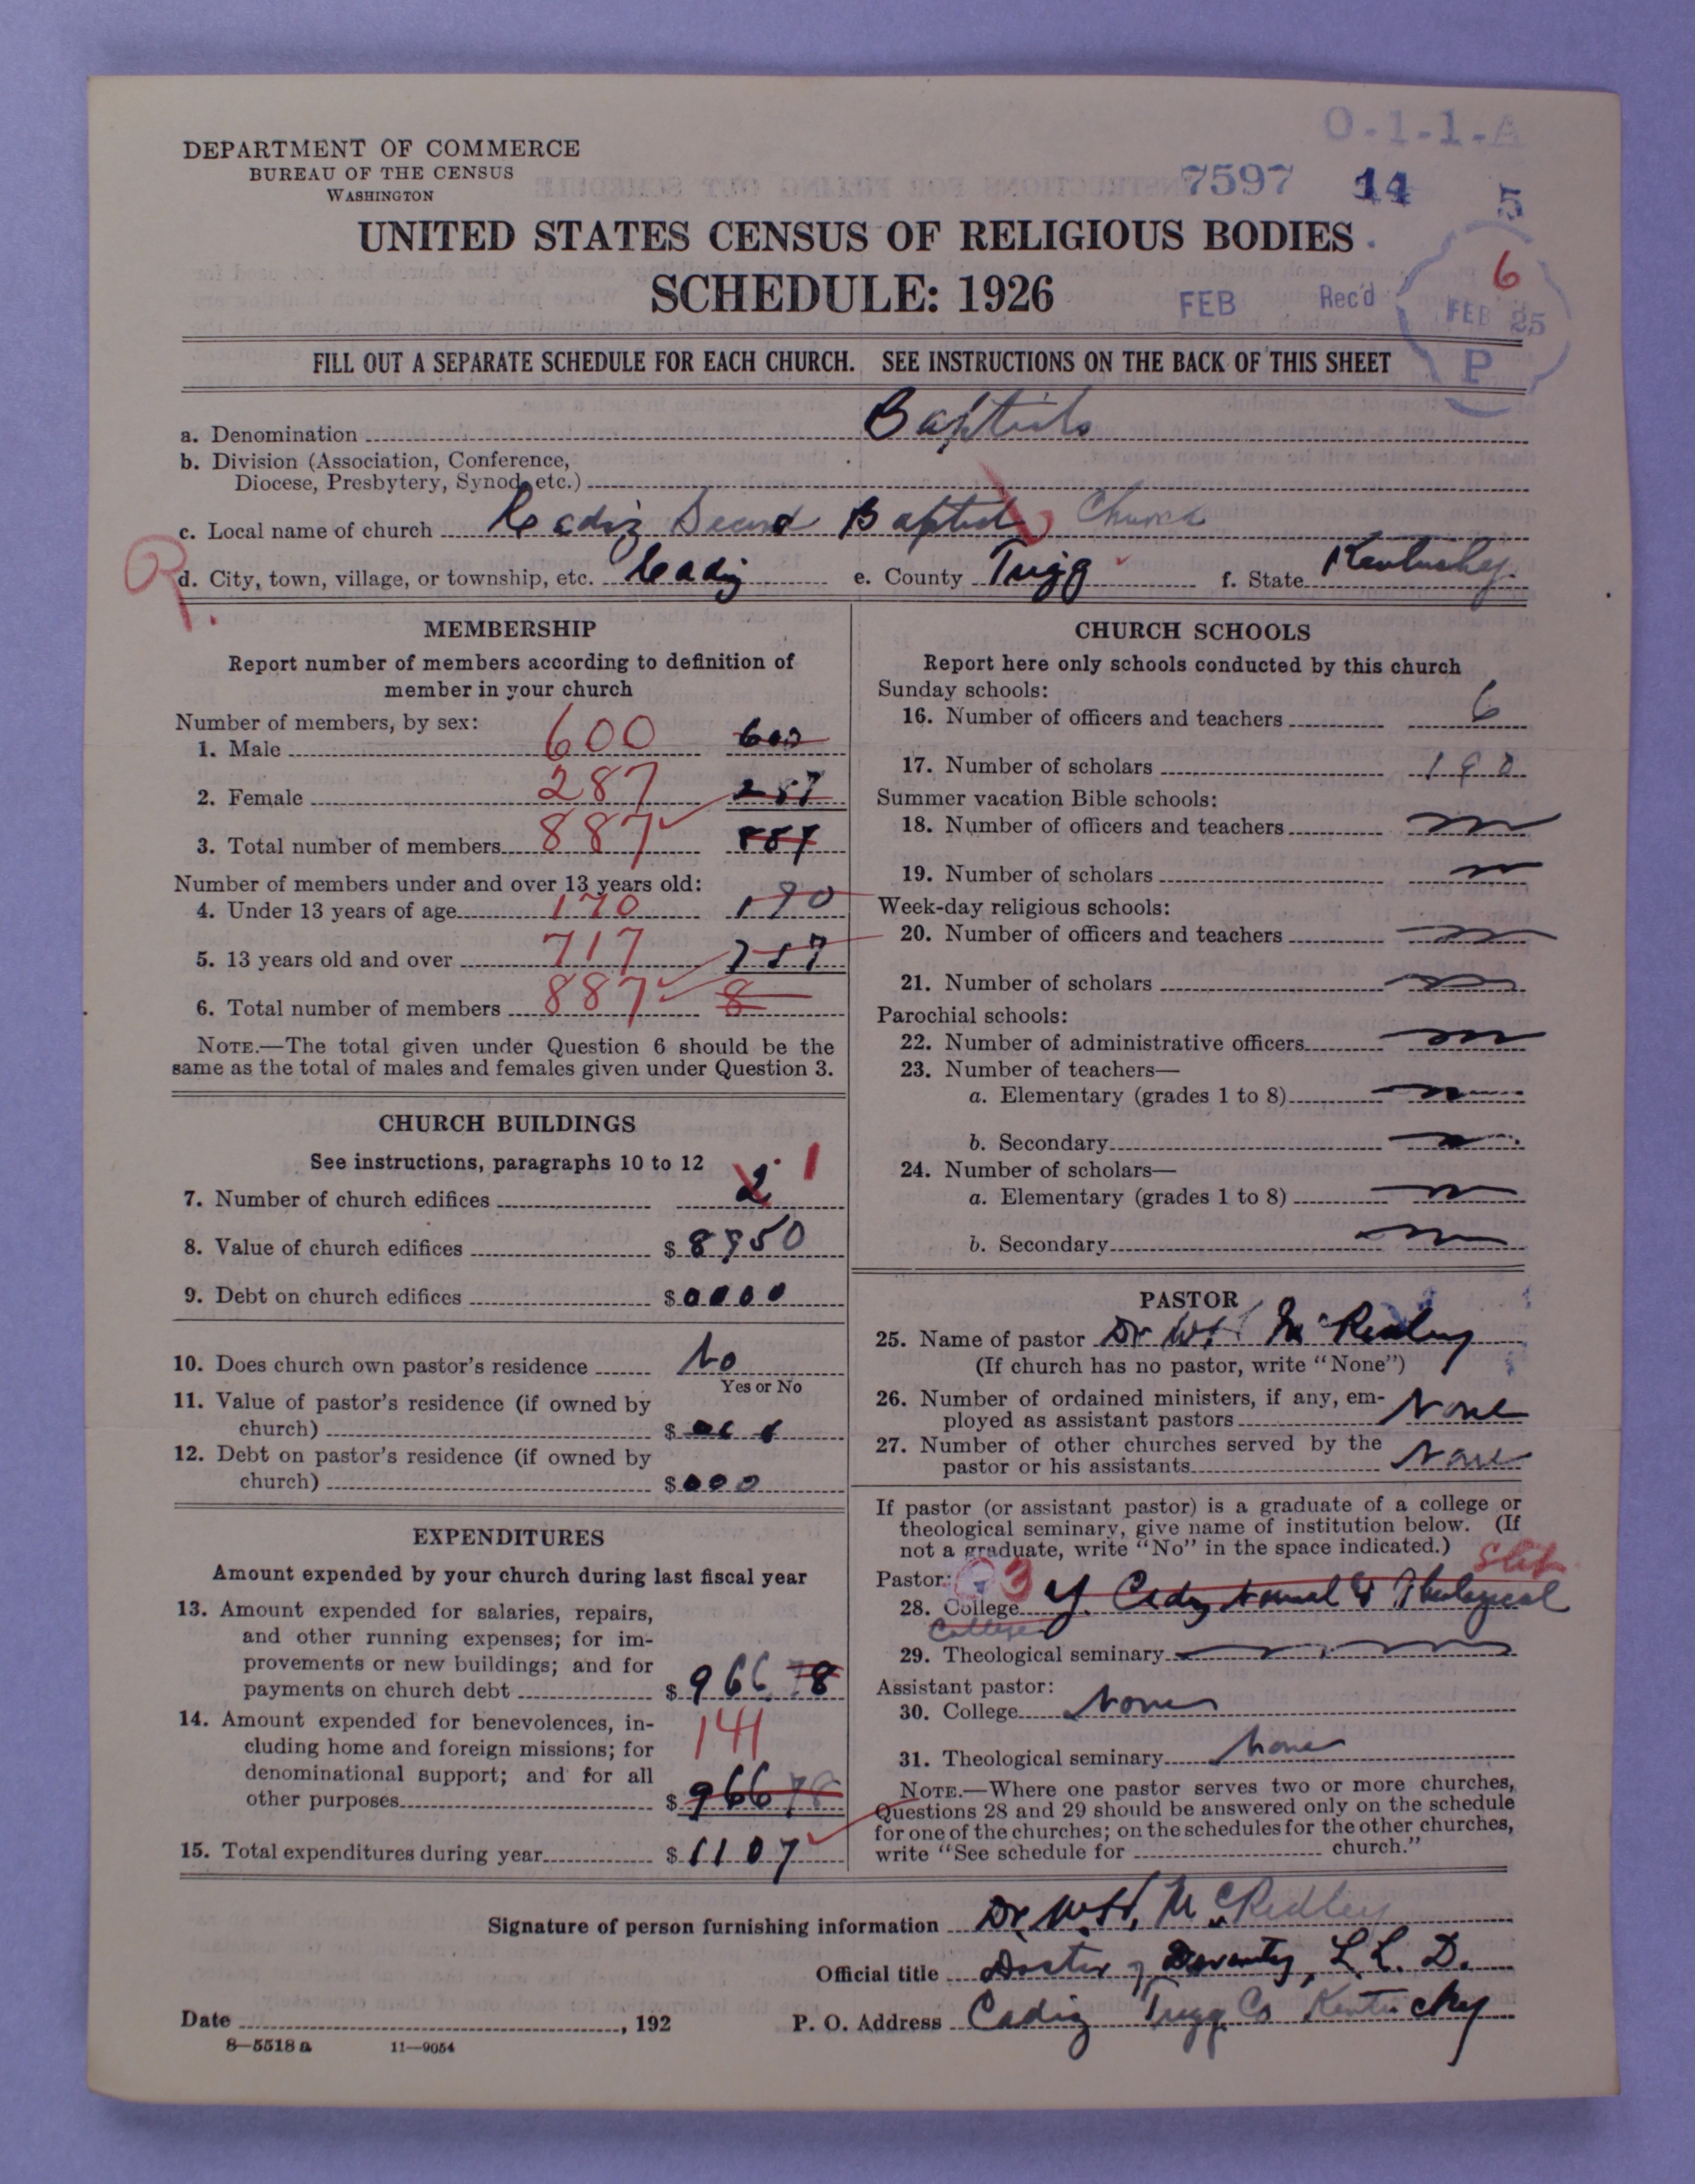 O-1-1-A
DEPARTMENT OF COMMERCE
BUREAU OF THE CENSUS
WASHINGTON
7597 14 5
UNITED STATES CENSUS OF RELIGIOUS BODIES
6
SCHEDULE: 1926
FEB Rec'd FEB 25
P
FILL OUT A SEPARATE SCHEDULE FOR EACH CHURCH. SEE INSTRUCTIONS ON THE BACK OF THIS SHEET
a. Denomination Baptists
b. Division (Association, Conference,
Diocese, Presbytery, Synod, etc.)
c. Local name of church Cadiz Second Baptist Church
R.
d. City, town, village, or township, etc. Cadiz e. County Trigg f. State Kentucky.
MEMBERSHIP
Report number of members according to definition of
member in your church
Number of members, by sex:
1. Male 600 600
2. Female 287 287
3. Total number of members 887 887
Number of members under and over 13 years old:
4. Under 13 years of age 170 170
5. 13 years old and over 717 717
6. Total number of members 887 8
NOTE.—The total given under Question 6 should be the
same as the total of males and females given under Question 3.
CHURCH BUILDINGS
See instructions, paragraphs 10 to 12
7. Number of church edifices 2 1
8. Value of church edifices $8950
9. Debt on church edifices $0000
10. Does church own pastor's residence No
Yes or No
11. Value of pastor's residence (if owned by
church) $
12. Debt on pastor's residence (if owned by
church) $000
EXPENDITURES
Amount expended by your church during last fiscal year
13. Amount expended for salaries, repairs,
and other running expenses; for im-
provements or new buildings; and for
payments on church debt $966 78
14. Amount expended for benevolences, in-
cluding home and foreign missions; for
denominational support; and for all
141
other purposes $966 78
15. Total expenditures during year $1107
CHURCH SCHOOLS
Report here only schools conducted by this church
Sunday schools:
16. Number of officers and teachers 6
17. Number of scholars 190
Summer vacation Bible schools:
18. Number of officers and teachers
19. Number of scholars
Week-day religious schools:
20. Number of officers and teachers
21. Number of scholars
Parochial schools:
22. Number of administrative officers
23. Number of teachers—
a. Elementary (grades 1 to 8)
b. Secondary
24. Number of scholars—
a. Elementary (grades 1 to 8)
b. Secondary
PASTOR
25. Name of pastor Dr W H McRidley
(If church has no pastor, write "None")
26. Number of ordained ministers, if any, em-
ployed as assistant pastors None
27. Number of other churches served by the
pastor or his assistants None
If pastor (or assistant pastor) is a graduate of a college or
theological seminary, give name of institution below. (If
not a graduate, write "No" in the space indicated.)
Pastor: 3
28. College Y. Cadiz Normal & Theological
College
29. Theological seminary
Assistant pastor:
30. College None
31. Theological seminary None
NOTE.—Where one pastor serves two or more churches,
Questions 28 and 29 should be answered only on the schedule
for one of the churches; on the schedules for the other churches,
write "See schedule for church."
Signature of person furnishing information Dr. W.H. McRidley
Official title Doctor of Devinity, L.L.D.
Date , 192 P. O. Address Cadiz Trigg Co Kentucky
8—5518 a 11—9054